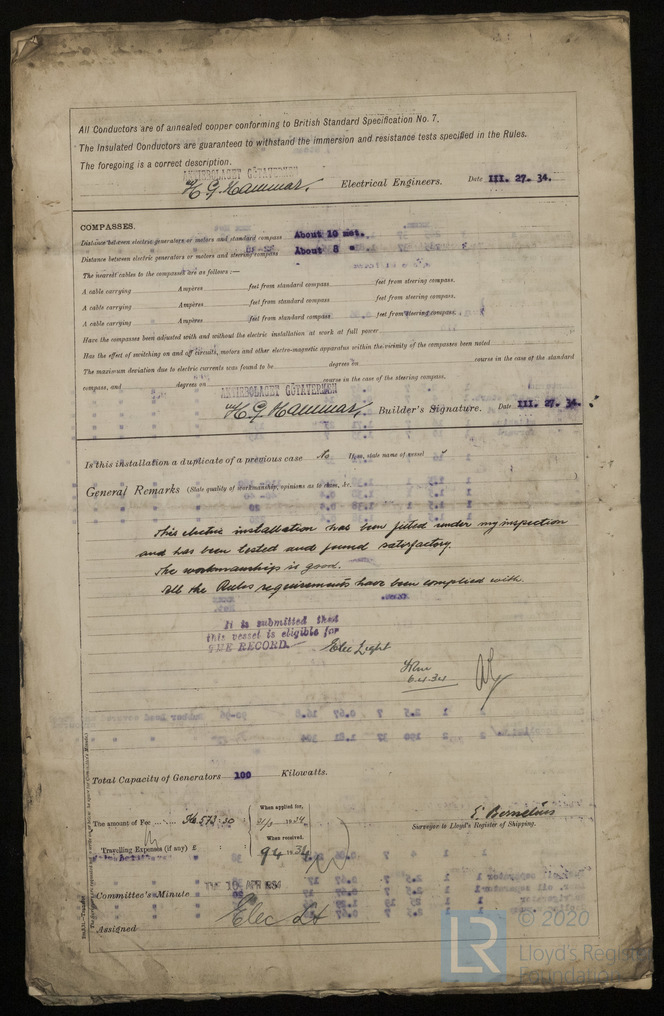 All Conductors are of annealed copper conforming to British Standard Specification No. 7.
The Insulated Conductors are guaranteed to withstand the immersion and resistance tests specified in the Rules.
The foregoing is a correct description.
AKTIEBOLAGET GÖTAVERKEN
H G Hammar. Electrical Engineers. Date III. 27. 34.
COMPASSES.
Distance between electric generators or motors and standard compass About 10 met.
Distance between electric generators or motors and steering compass About 8 "
The nearest cables to the compasses are as follows:—
A cable carrying Ampères feet from standard compass feet from steering compass.
A cable carrying Ampères feet from standard compass feet from steering compass.
A cable carrying Ampères feet from standard compass feet from steering compass.
Have the compasses been adjusted with and without the electric installation at work at full power
Has the effect of switching on and off circuits, motors and other electro-magnetic apparatus within the vicinity of the compasses been noted
The maximum deviation due to electric currents was found to be degrees on course in the case of the standard
compass, and degrees on course in the case of the steering compass.
AKTIEBOLAGET GÖTAVERKEN
H G Hammar. Builder's Signature. Date III. 27. 34.
Is this installation a duplicate of a previous case No If so, state name of vessel
General Remarks (State quality of workmanship, opinions as to class, &c.
This electric installation has been fitted under my inspection
and has been tested and found satisfactory.
The workmanship is good.
All the Rules requirements have been complied with.
It is submitted that
this vessel is eligible for
THE RECORD. Elec Light
6.4.34
Total Capacity of Generators 100 Kilowatts.
The amount of Fee Kr 573:30 When applied for, 1934
Travelling Expenses (if any) £ When received, 9.4.1934
E. Bernelius
Surveyor to Lloyd's Register of Shipping.
Committee's Minute TUE 10 APR 1934
Assigned Elec Lt
LR © 2020
Lloyd's Register
Foundation